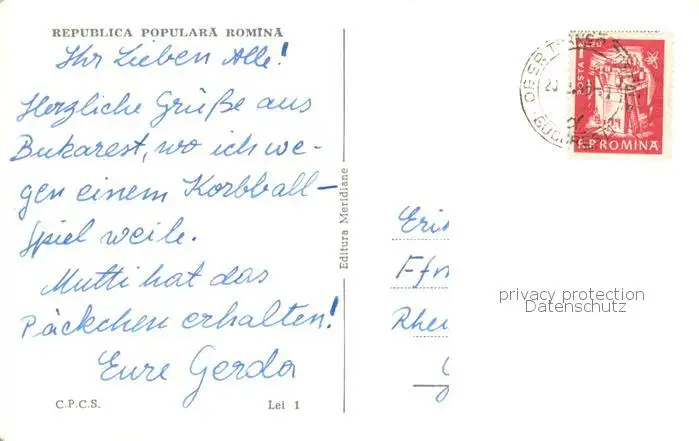 REPUBLICA POPULARĂ ROMÎNĂ
Ihr Lieben Alle!
Herzliche Grüße aus
Bukarest, wo ich we-
gen einem Korbball-
spiel weile.
Mutti hat das
Päckchen erhalten!
Eure Gerda
C.P.C.S. Lei 1
Editura Meridiane
POSTA
R.P.ROMINA
Ffm
privacy protection
Datenschutz